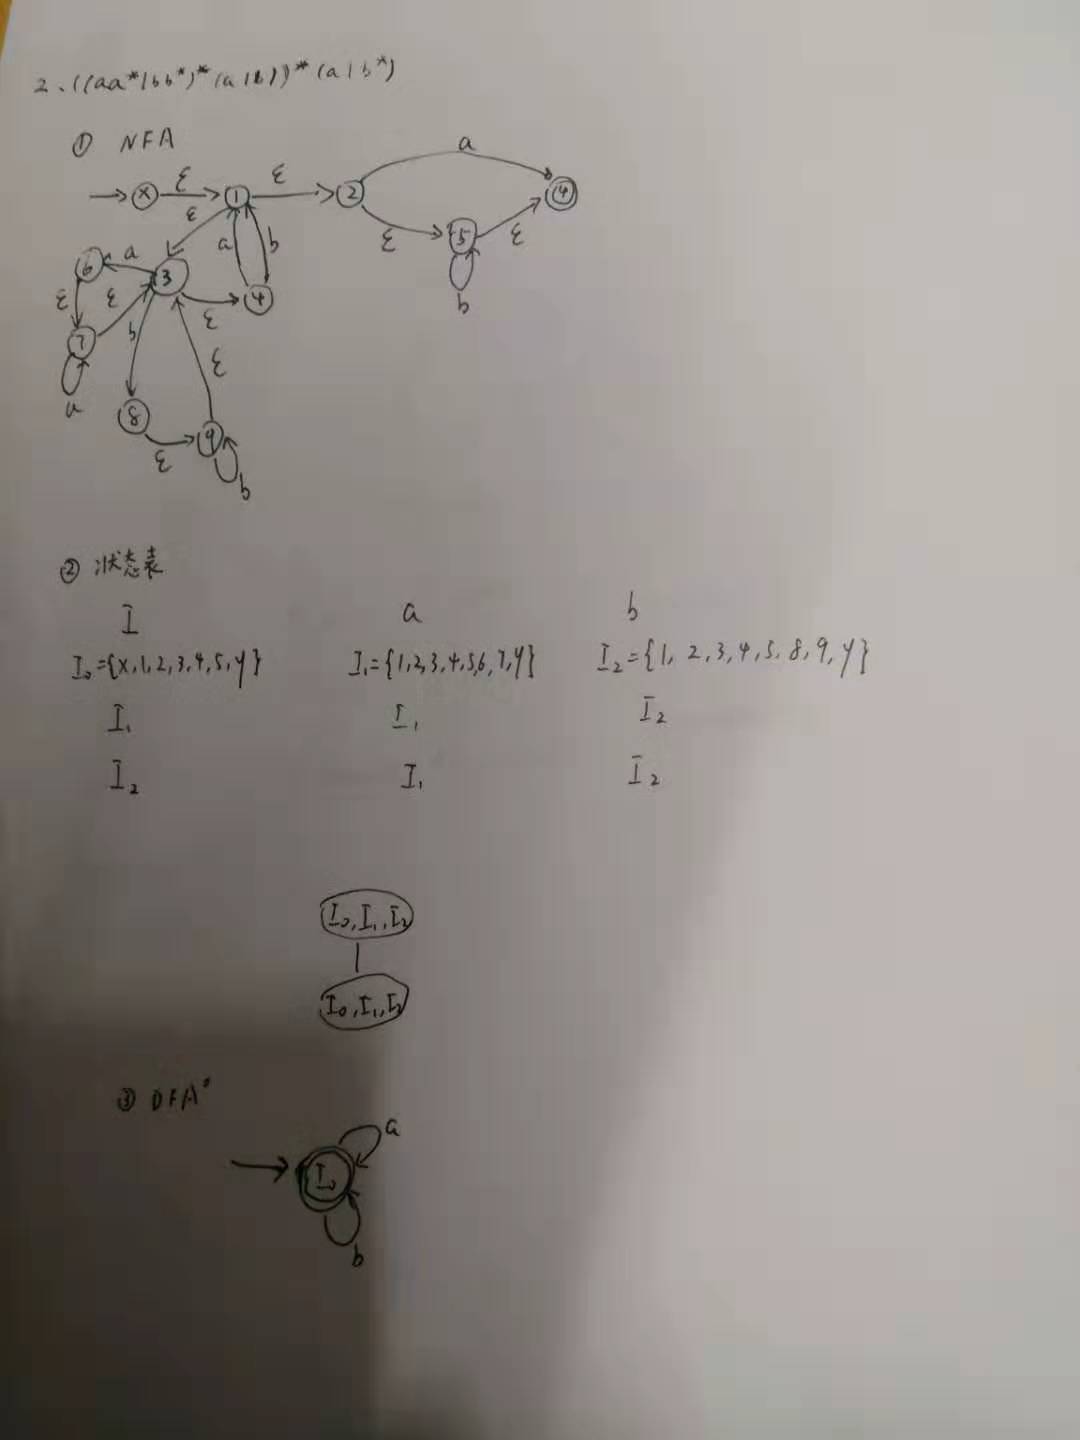 2、((aa*|bb*)*(a|b))*(a|b*)
① NFA
a
X ε 1 ε 2 y
ε a b ε 5 ε
6 a 3 4 b
ε ε ε
7 b ε
a 8 9
ε b
② 状态表
I a b
I₀={X,1,2,3,4,5,y} I₁={1,2,3,4,5,6,7,y} I₂={1,2,3,4,5,8,9,y}
I₁ I₁ I₂
I₂ I₁ I₂
I₀,I₁,I₂
I₀,I₁,I₂
③ DFA
a
I₀
b